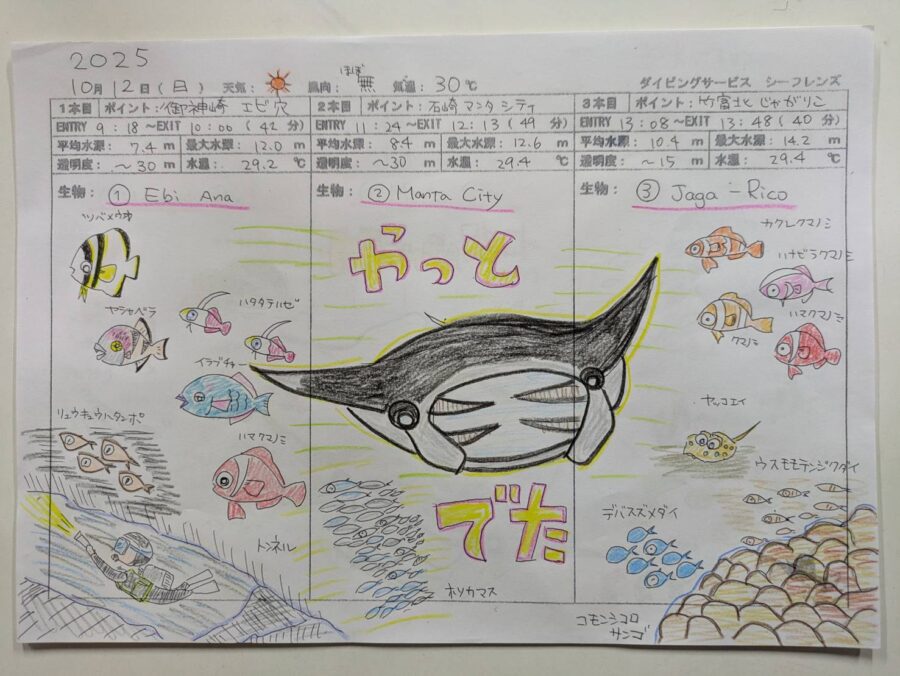 2025
10月12日(日) 天気: 風向: ほぼ無 気温: 30℃ ダイビングサービス シーフレンズ
1本目 ポイント: 御神崎 エビ穴
ENTRY 9:18 ~EXIT 10:00 (42 分)
平均水深: 7.4 m 最大水深: 12.0 m
透明度: ~30 m 水温: 29.2 ℃
生物: ① Ebi Ana
ツバメウオ
ヤシャベラ
ハタタテハゼ
イラブチャー
リュウキュウハタンポ
ハマクマノミ
トンネル
2本目 ポイント: 石崎 マンタシティ
ENTRY 11:24 ~EXIT 12:13 (49 分)
平均水深: 8.4 m 最大水深: 12.6 m
透明度: ~30 m 水温: 29.4 ℃
生物: ② Manta City
やっと
でた
ホソカマス
3本目 ポイント: 竹富北 じゃがりこ
ENTRY 13:08 ~EXIT 13:48 (40 分)
平均水深: 10.4 m 最大水深: 14.2 m
透明度: ~15 m 水温: 29.4 ℃
生物: ③ Jaga-Rico
カクレクマノミ
ハナビラクマノミ
ハマクマノミ
クマノミ
ヤッコエイ
ウスモモテンジクダイ
デバスズメダイ
コモンシコロ
サンゴ